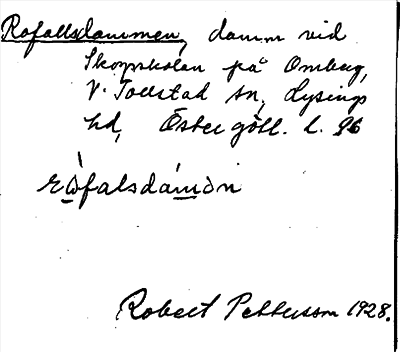 Rafallsdammen, damm vid
Skogsskolan på Omberg,
V. Tollstad sn, Lysings
hd, Östergötl. l. 96
ròfalsdámən
Robert Pettersson 1928.